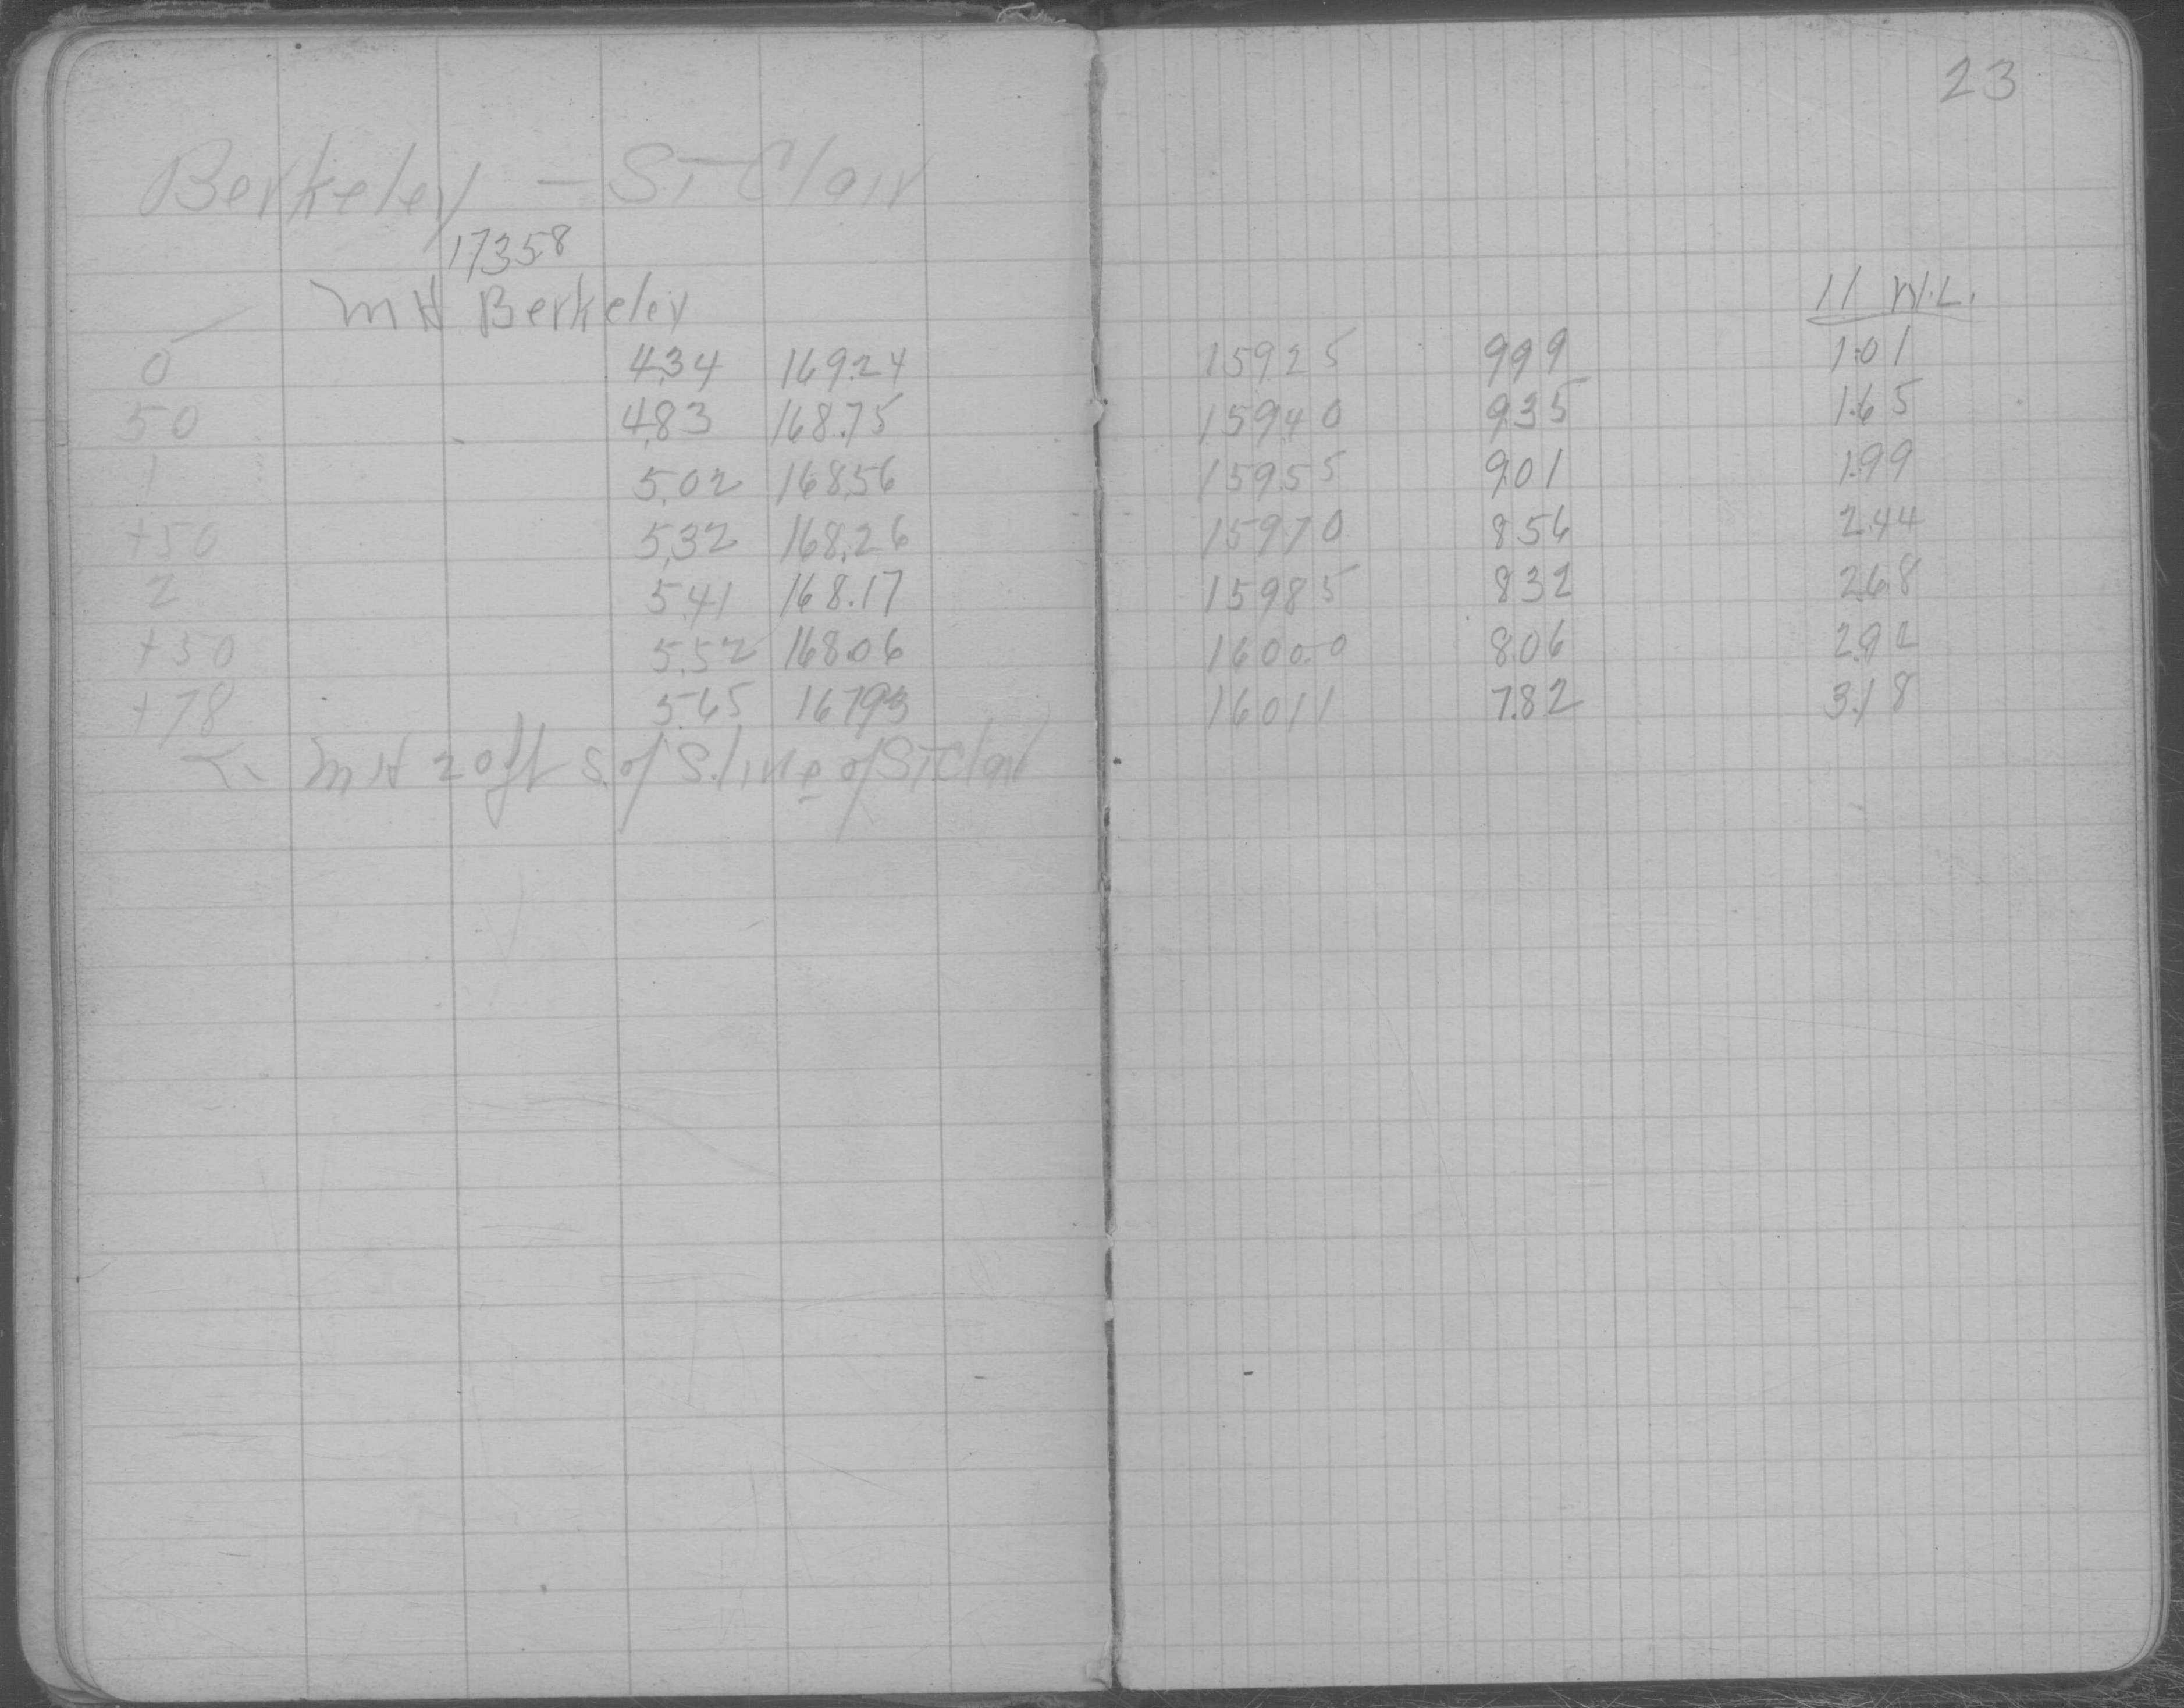 23
Berkeley - St Clair
173.58
MH Berkeley
11 W.L.
0 4.34 169.24 159.25 9.99 1.01
50 4.83 168.75 159.40 9.35 1.65
1 5.02 168.56 159.55 9.01 1.99
+50 5.32 168.26 159.70 8.56 2.44
2 5.41 168.17 159.85 8.32 2.68
+50 5.52 168.06 160.00 8.06 2.92
+78 5.65 167.93 160.11 7.82 3.18
MH 20ft S. of S. line of St Clair